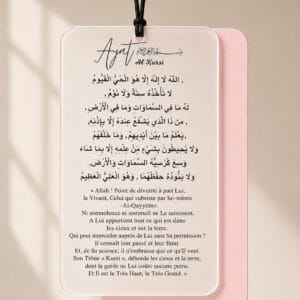 Ayat
Al Kursi
اللَّهُ لَا إِلَهَ إِلَّا هُوَ الْحَيُّ الْقَيُّومُ ،
لَا تَأْخُذُهُ سِنَةٌ وَلَا نَوْمٌ ،
لَهُ مَا فِي السَّمَاوَاتِ وَمَا فِي الْأَرْضِ ،
مَن ذَا الَّذِي يَشْفَعُ عِندَهُ إِلَّا بِإِذْنِهِ ،
يَعْلَمُ مَا بَيْنَ أَيْدِيهِمْ ، وَمَا خَلْفَهُمْ
وَلَا يُحِيطُونَ بِشَيْءٍ مِّنْ عِلْمِهِ إِلَّا بِمَا شَاءَ
وَسِعَ كُرْسِيُّهُ السَّمَاوَاتِ وَالْأَرْضَ ،
وَلَا يَئُودُهُ حِفْظُهُمَا ، وَهُوَ الْعَلِيُّ الْعَظِيمُ
« Allah ! Point de divinité à part Lui,
le Vivant, Celui qui subsiste par lui-même
-Al-Qayyûm-.
Ni somnolence ni sommeil ne Le saisissent.
A Lui appartient tout ce qui est dans
les cieux et sur la terre.
Qui peut intercéder auprès de Lui sans Sa permission ?
Il connaît leur passé et leur futur.
Et, de Sa science, il n'embrasse que ce qu'Il veut.
Son Trône « Kursi » , déborde les cieux et la terre,
dont la garde ne Lui coûte aucune peine.
Et Il est le Très Haut, le Très Grand. »